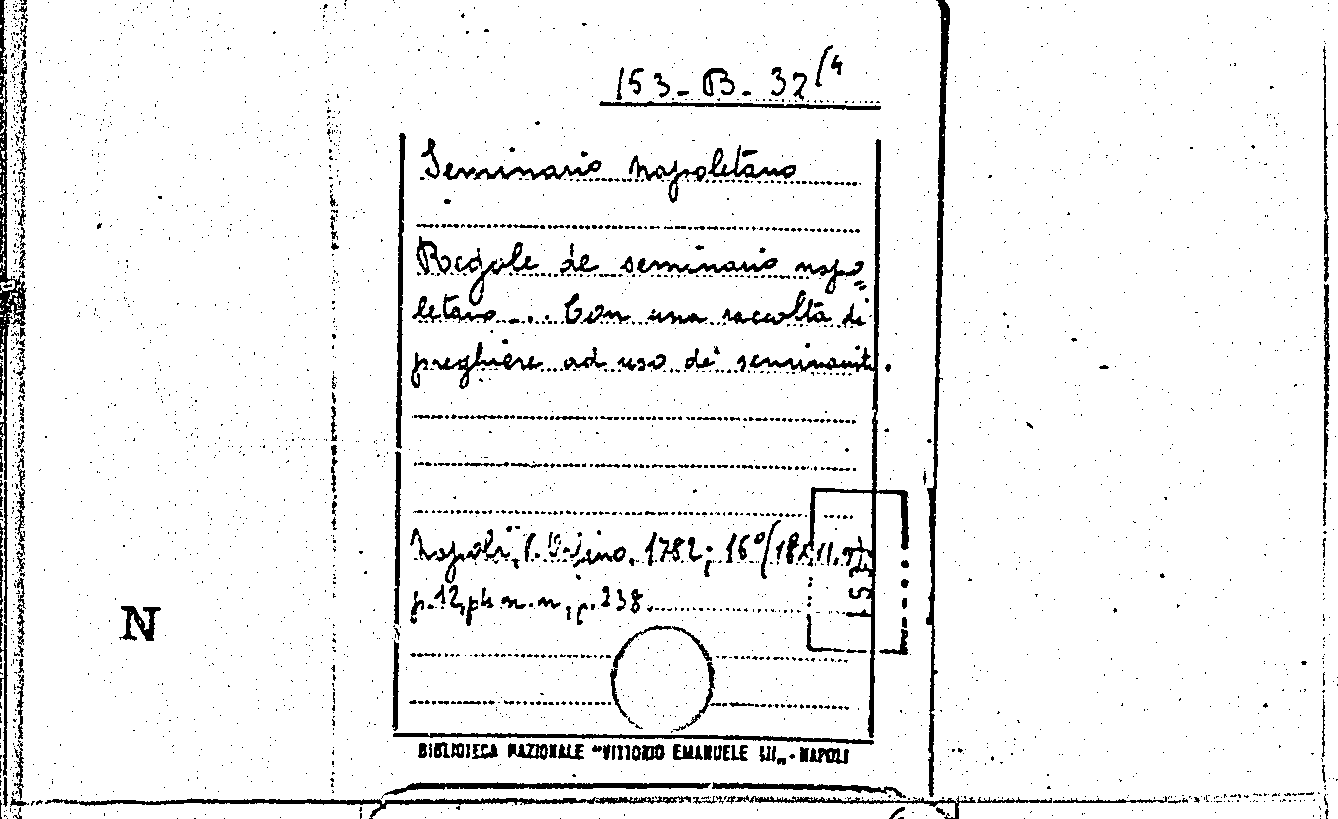 153-B-32/4
Seminario napoletano
Regole de seminario napo=
letano ... Con una raccolta di
preghiere ad uso de' seminaristi.
Napoli, 1782; 16º
p. 12, n.n., p. 238.
N
BIBLIOTECA NAZIONALE "VITTORIO EMANUELE III„ - NAPOLI